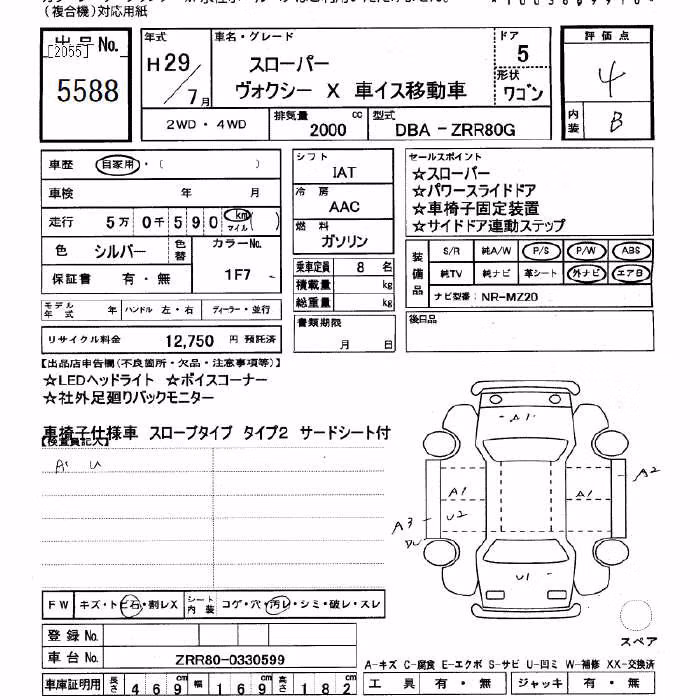 (複合機)対応用紙
出品No.
[2055]
5588
年式
H29/7月
車名・グレード
スローパー
ヴォクシー X 車イス移動車
ドア
5
形状
ワゴン
評価点
4
内装
B
2WD・4WD
排気量
2000
cc
型式
DBA-ZRR80G
車歴 自家用・( )
車検 年 月
走行 5万0千590 km マイル ( )
色 シルバー 色替 カラーNo. 1F7
保証書 有・無
モデル年式 年 ハンドル 左・右 ディーラー・並行
リサイクル料金 12,750 円 預託済
シフト
IAT
冷房
AAC
燃料
ガソリン
乗車定員 8 名
積載量 kg
総重量 kg
書類期限
月 日
セールスポイント
☆スローパー
☆パワースライドドア
☆車椅子固定装置
☆サイドドア連動ステップ
装備品
S/R 純A/W P/S P/W ABS
純TV 純ナビ 革シート 外ナビ エアB
ナビ型番: NR-MZ20
後日品
【出品店申告欄(不良箇所・欠品・注意事項等)】
☆LEDヘッドライト ☆ボイスコーナー
☆社外足廻りバックモニター
車椅子仕様車 スロープタイプ タイプ2 サードシート付
【検査員記入】
A' U
A1
A1
U2
A1
A2
A3
U1
FW キズ・トビ石・割レX シート内装 コゲ・穴・汚レ・シミ・破レ・スレ
登録No.
車台No. ZRR80-0330599
車庫証明用 長さ 469cm 幅 169cm 高さ 182
スペア
A-キズ C-腐食 E-エクボ S-サビ U-凹ミ W-補修 XX-交換済
工具 有・無 ジャッキ 有・無